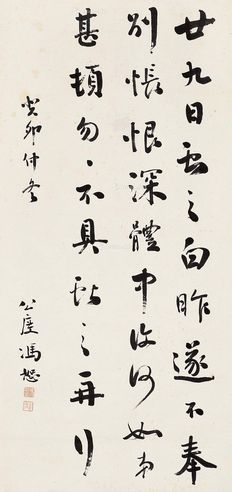 廿九日獻之白昨遂不奉
別悵恨深體中復何如弟
甚頓勿〻不具獻之再拜
癸卯仲冬
公度馮恕